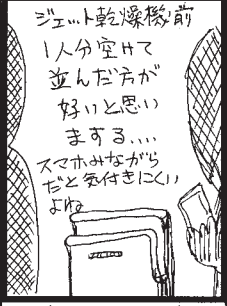 ジェット乾燥機前
1人分空けて
並んだ方が
好いと思い
まする....
スマホみながら
だと気付きにくい
よね